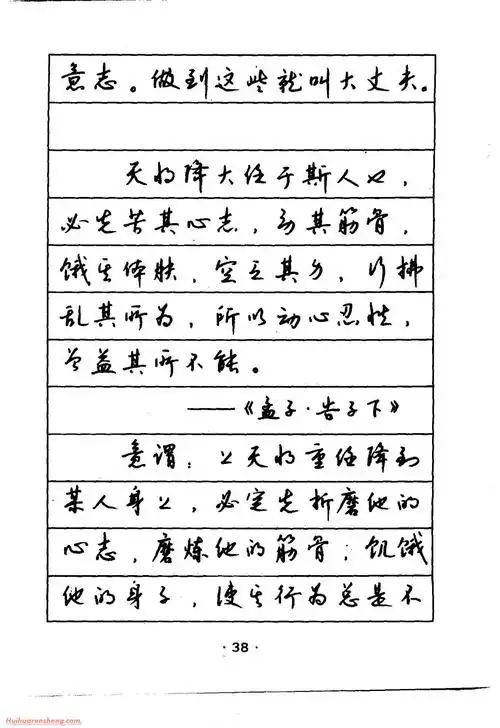 意志。做到这些就叫大丈夫。
天将降大任于斯人也，
必先苦其心志，劳其筋骨，
饿其体肤，空乏其身，行拂
乱其所为，所以动心忍性，
曾益其所不能。
——《孟子·告子下》
意谓：上天将重任降到
某人身上，必定先折磨他的
心志，磨炼他的筋骨；饥饿
他的身子，使其行为总是不
·38·
Huihuarensheng.com.